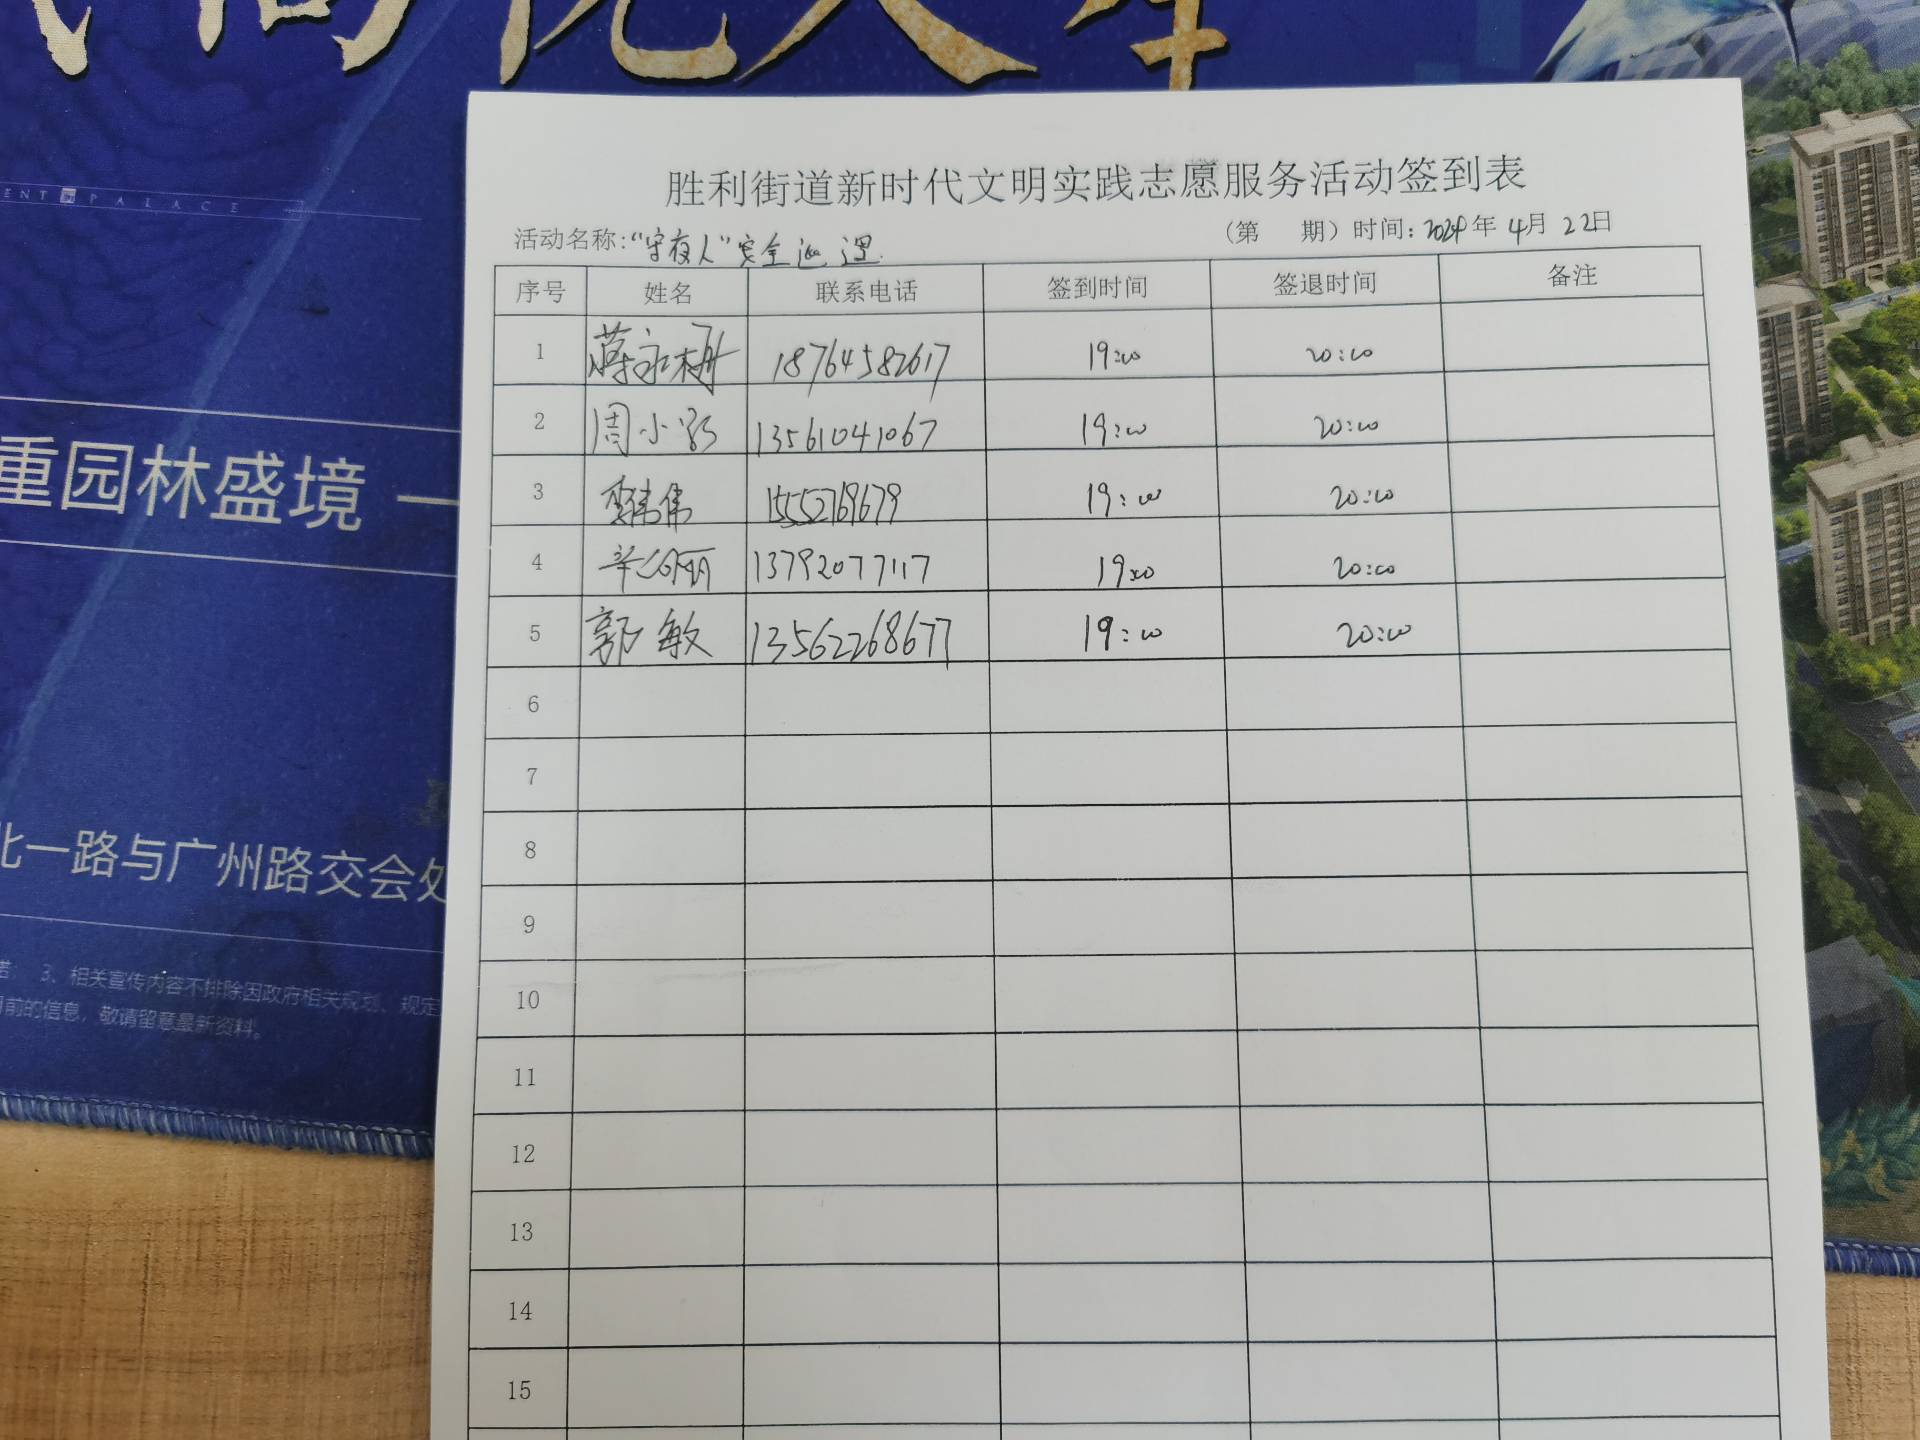 ENT PALACE
重园林盛境 —
北一路与广州路交会处
3、相关宣传内容不排除因政府相关规划、规定
前的信息，敬请留意最新资料。
胜利街道新时代文明实践志愿服务活动签到表
活动名称:“守夜人”安全巡逻 (第 期) 时间: 2024年 4月 22日
序号 姓名 联系电话 签到时间 签退时间 备注
1 蒋永栅 18764582617 19:00 20:00
2 周小 13561041067 19:00 20:00
3 伟 15552769679 19:00 20:00
4 辛 丽 13792077117 19:00 20:00
5 郭敏 13562268677 19:00 20:00
6
7
8
9
10
11
12
13
14
15